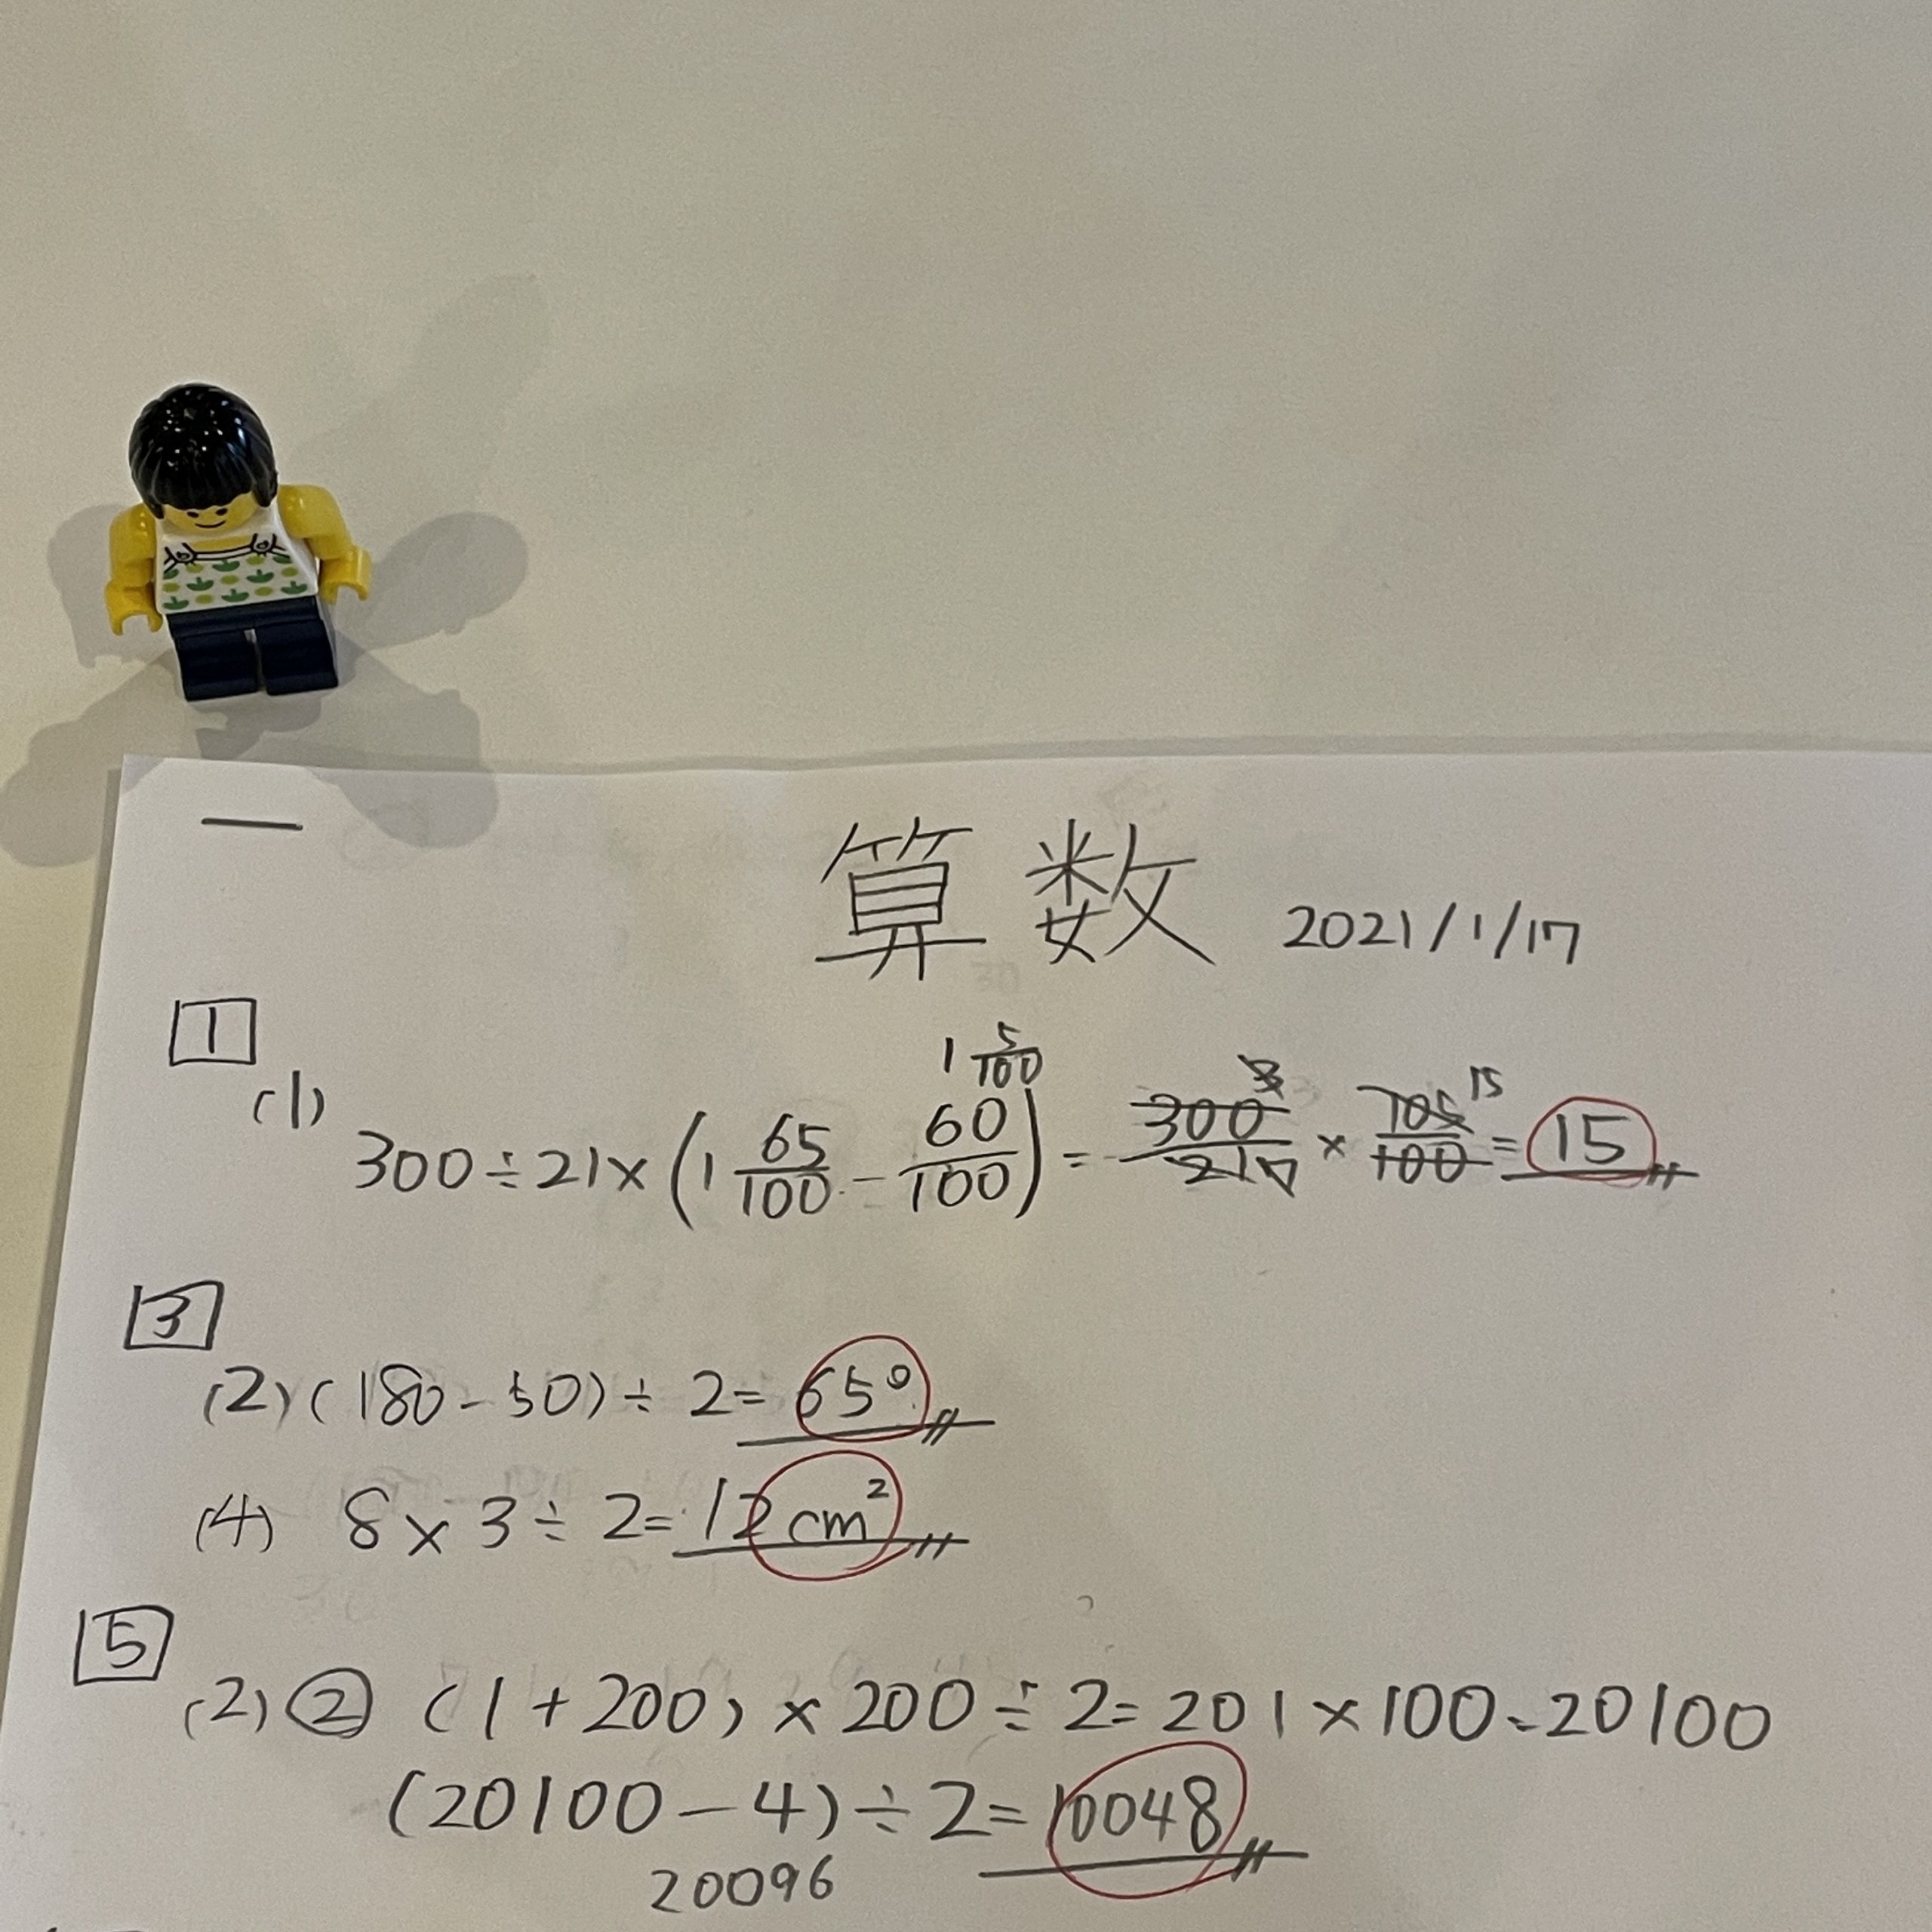 算数 2021/1/17
1
1 5/100
(1) 300÷21×(1 65/100 - 60/100) = 300/21 × 105/100 = 15
3 7 15
3
(2) (180-50)÷2=65°
(4) 8×3÷2=12cm²
5
(2)② (1+200)×200÷2=201×100=20100
(20100-4)÷2=10048
20096